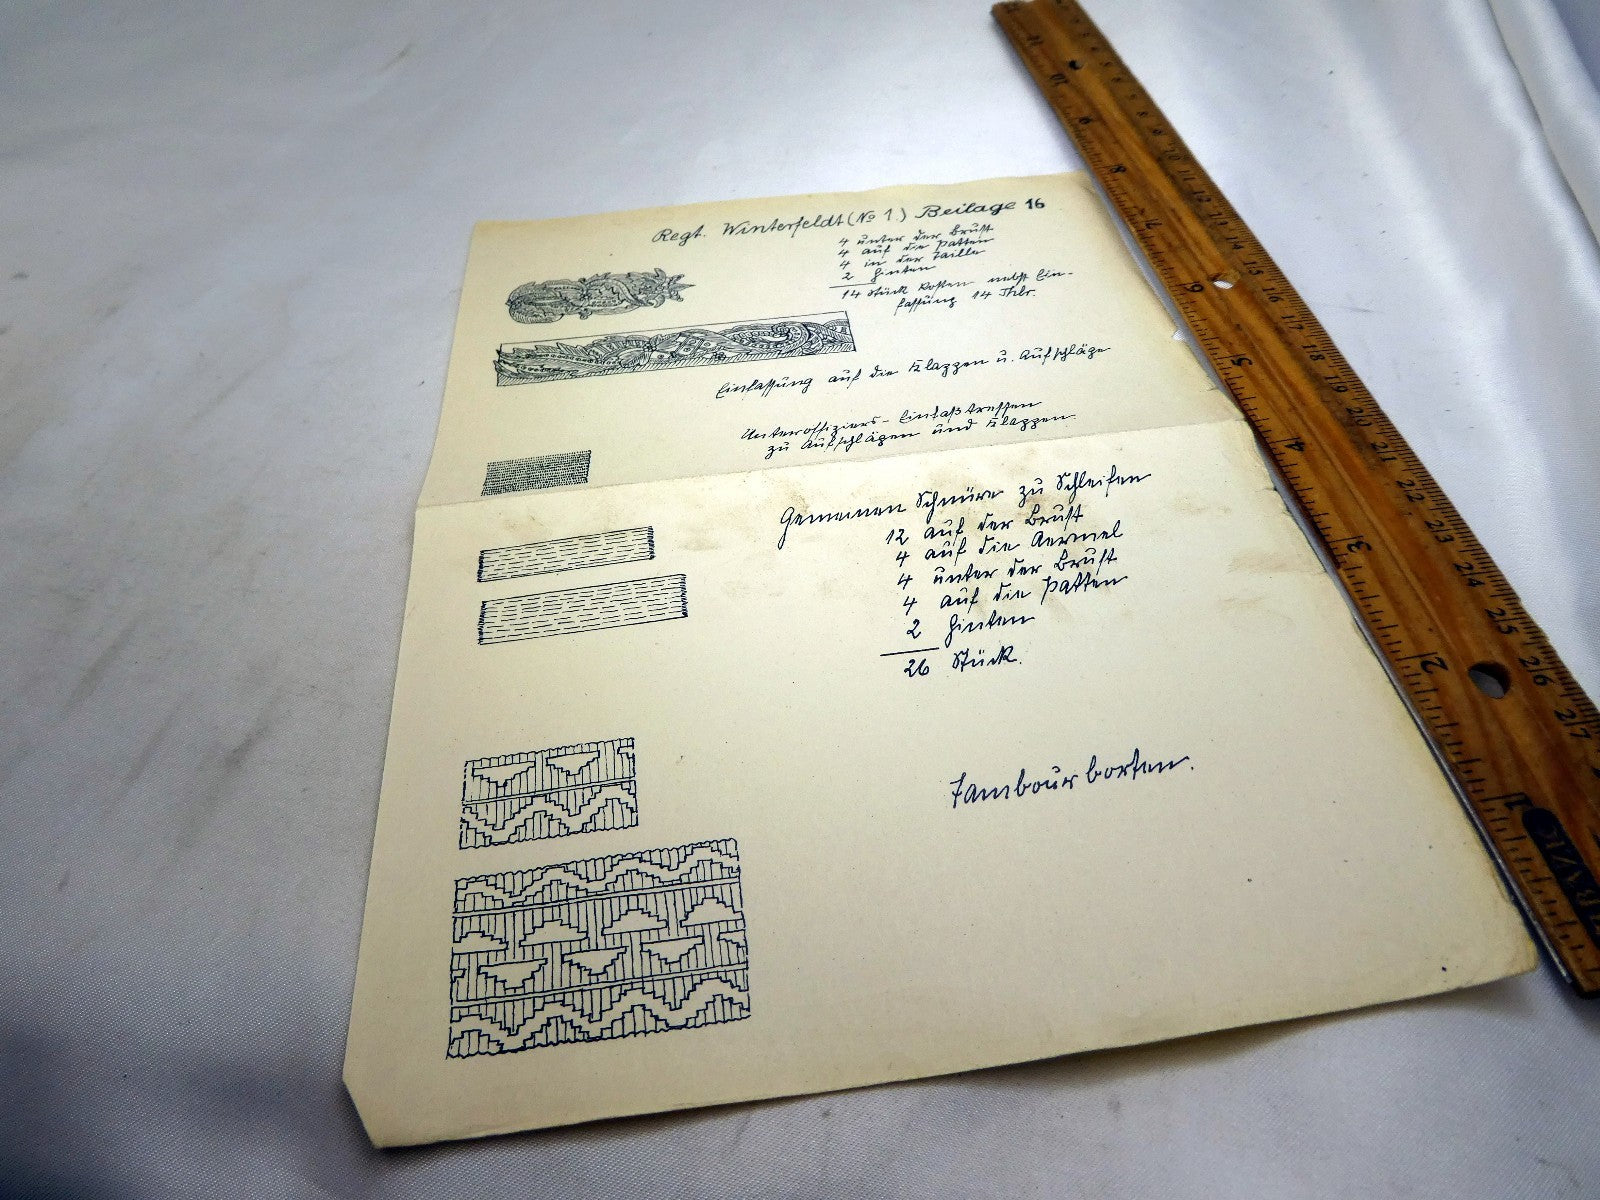 Regt. Winterfeldt (No 1.) Beilage 16
4 unter der Brust
4 auf die Patten
4 in der Taille
2 hinten
14 Stück kosten nebst Ein-
fassung 14 Thlr.
Einfassung auf die Klappen u. Aufschläge
Unteroffiziers-Einfaßtressen
zu Aufschlägen und Klappen.
Gemeinen Schnüre zu Schleifen
12 auf der Brust
4 auf die Aermel
4 unter der Brust
4 auf die Patten
2 hinten
26 Stück.
Tambourborten.
11 10 9 8 7 6 5 4 3 2 1
10 11 12 13 14 15 16 17 18 19 20 21 22 23 24 25 26 27